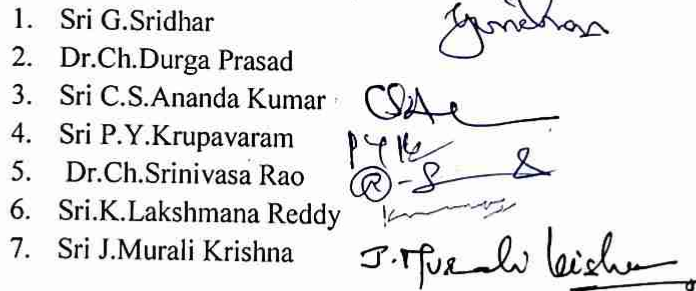 1. Sri G.Sridhar
2. Dr.Ch.Durga Prasad
3. Sri C.S.Ananda Kumar
4. Sri P.Y.Krupavaram PYK
5. Dr.Ch.Srinivasa Rao
6. Sri.K.Lakshmana Reddy
7. Sri J.Murali Krishna J.Murali Krishna